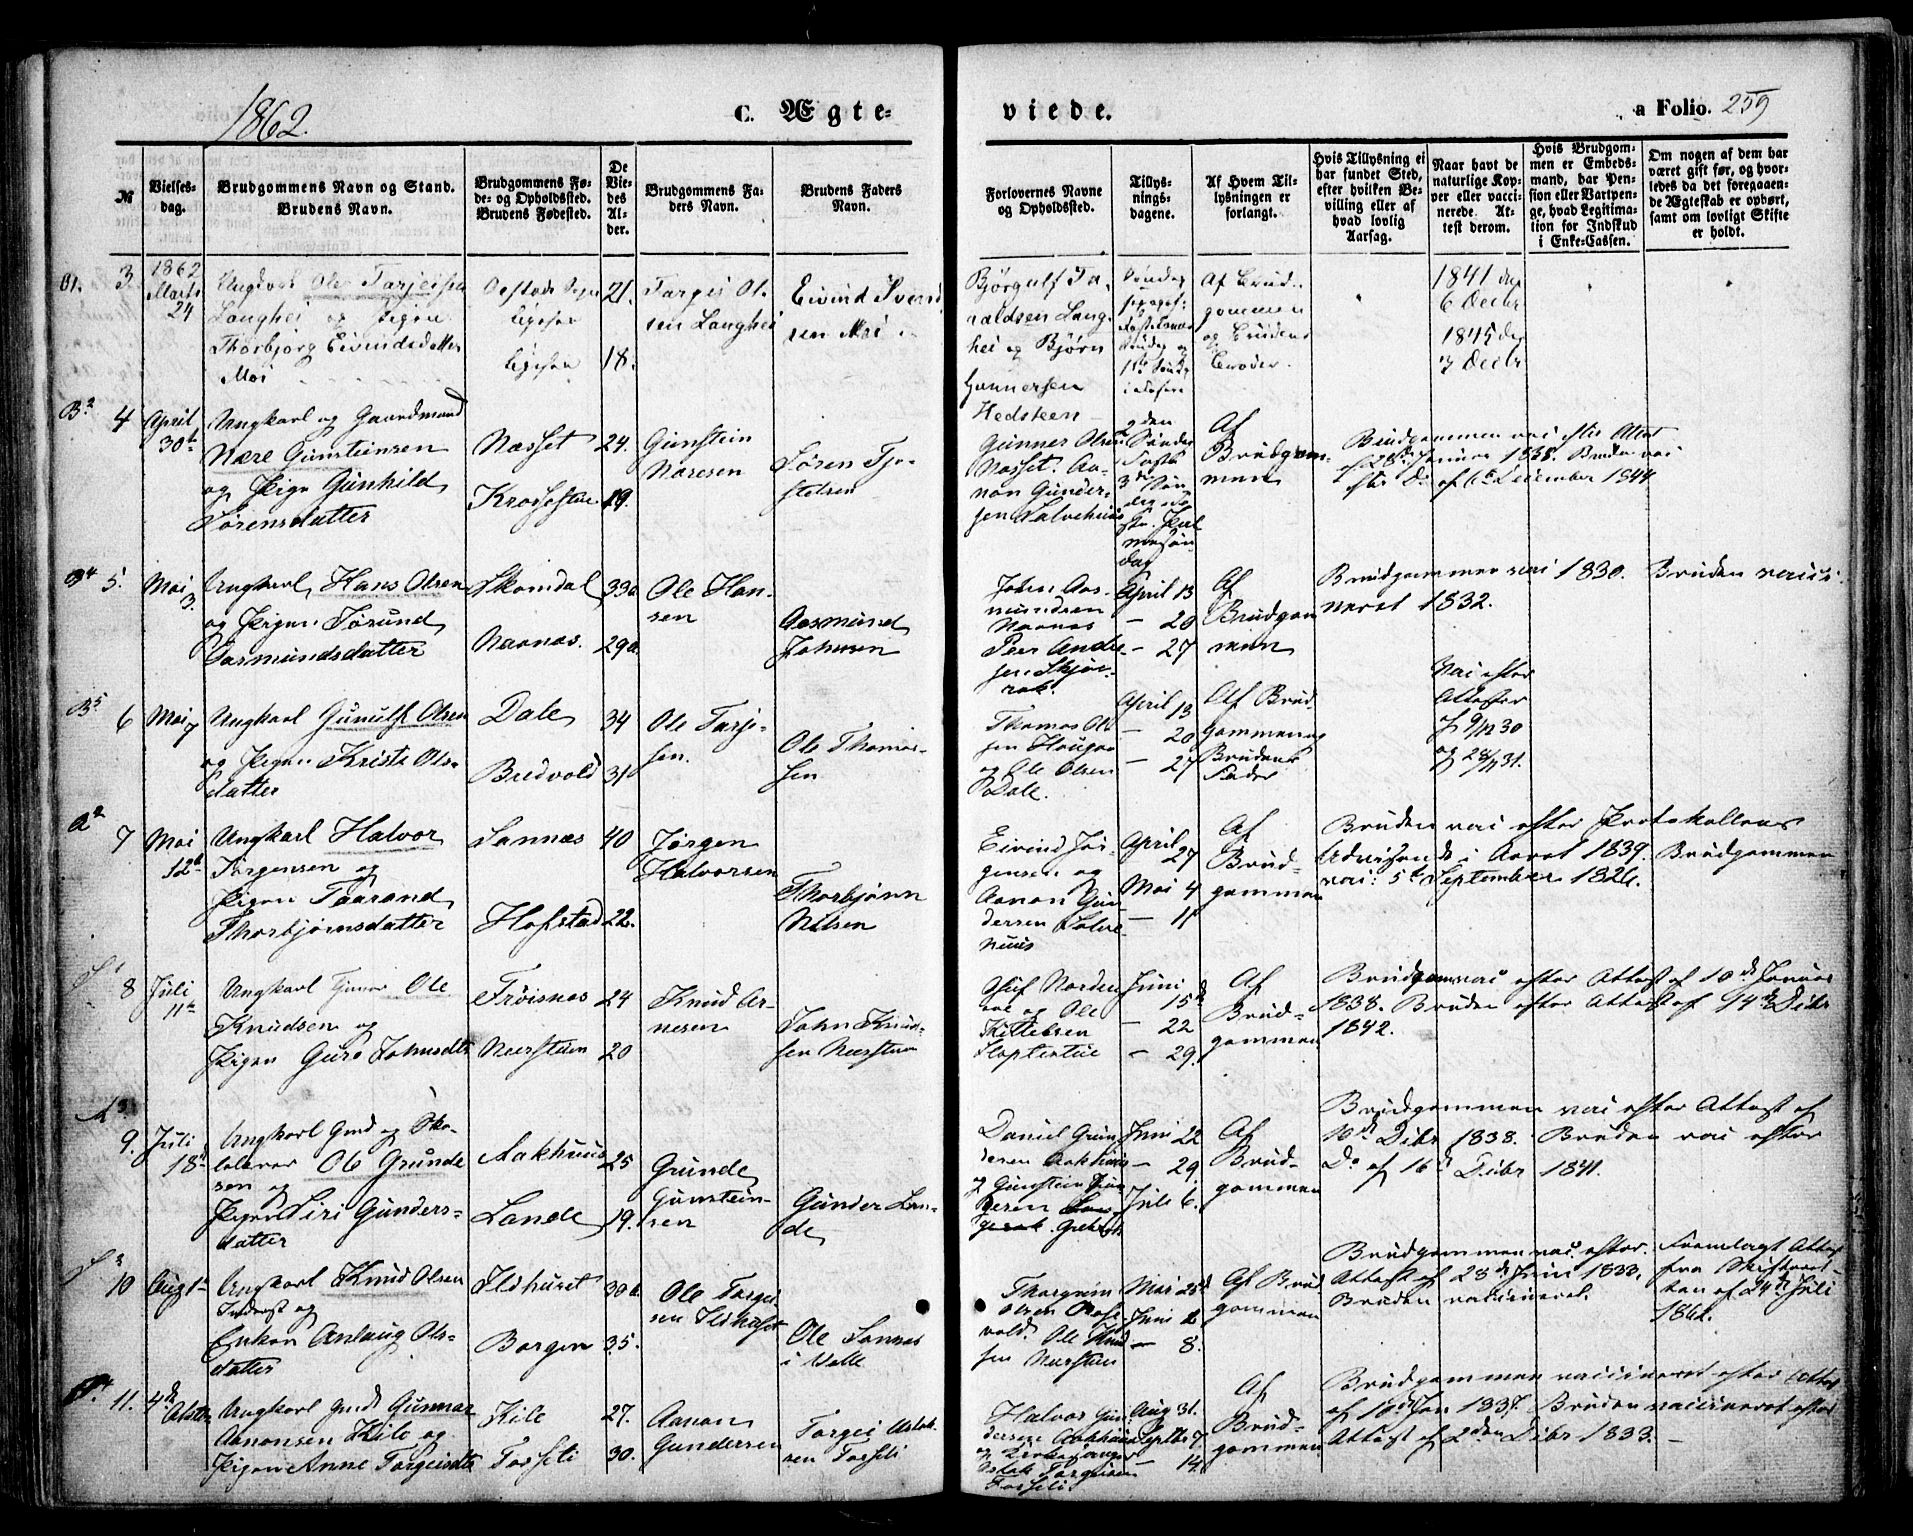 1862.
C. Ægte-
viede.
a Folio. 259
№
Vielses-
dag.
Brudgommens Navn og Stand.
Brudens Navn.
Brudgommens Fø-
de- og Opholdssted.
Brudens Fødested.
De
Vie-
des
Al-
der.
Brudgommens Fa-
ders Navn.
Brudens Faders
Navn.
Forlovernes Navne
og Opholdssted.
Tillys-
nings-
dagene.
Af Hvem Til-
lysningen er
forlangt.
Hvis Tillysning ei
har fundet Sted,
efter hvilken Be-
villing eller af
hvad lovlig
Aarsag.
Naar havt de
naturlige Kop-
per eller vacci-
nerede. At-
test derom.
Hvis Brudgom-
men er Embeds-
mand, har Pen-
sion eller Vartpen-
ge, hvad Legitima-
tion for Indskud
i Enke-Cassen.
Om nogen af dem har
været gift før, og hvor-
ledes da det foregaaen-
de Ægteskab er ophørt,
samt om lovligt Skifte
er holdt.
3
1862
Marts
24
Ungkarl Ole Tarjeisen
Langhei og Pigen
Thorbjørg Eivindsdatter
Moi
21.
18.
Targei Ol-
sen Langhei
Eivind Iverd
sen Moi
Bjørgulf Ta-
raldsen Lang-
hei og Bjørn
Gunnersen
Hedsteen
Af Brud-
gommen
og Brudens
Broder.
1841 den
6 Decbr
1845 den
3 Decbr
B2
4
April
30te
Ungkarl og Gaardmand
Nære Gunsteinsen
og Pige Gunhild
Sørensdatter
Næsset
24.
Krossetue
19.
Gunstein
Næresen
Søren Tjo-
stelsen
Gunner Olsen
Næsset. Aa-
non Gunder-
sen Salvehuus
Af
Brudgom-
men
Brudgommen vac: efter Attest
af 28de Januar 1838. Bruden vac:
efter Do af 6te December 1844
B4
5.
Mai
3.
Ungkarl Hans Olsen
og Pigen Jørund
Aasmundsdatter
Skomdal
33a
Naones.
29a
Ole Han-
sen
Aasmund
Johnsen
John Aas-
mundsen
Naones
Peer Ander-
sen Skjæ-
rak.
April 13
— 20
— 27
Af
Brudgom
men
Brudgommen vac: 1830. Bruden vacci-
neret 1832.
B5
6
Mai
7
Ungkarl Gunulf Olsen
og Pigen Kristi Ols-
datter
Dale
34
Bredvold
31
Ole Tarje-
sen.
Ole Thomas-
sen
Thomas Ol-
sen Haugaa
og Ole Olsen
Dale.
April 13
— 20
— 27
Af Brud
gommen og
Brudens
Fader
Vac: efter
Attester
af 9/12 30
og
af 28/11 31.
A2
7
Mai
12te
Ungkarl Halvor
Jørgensen og
Pigen Taarand
Thorbjørnsdatter
Sannæs
40
Hofstad
22.
Jørgen
Halvorsen
Thorbjønn
Nilsen
Eivind Jør-
gensen og
Aanon Gun-
dersen Salve-
huus
April
27
Mai 4
— 11
Af
Brud-
gommen
Bruden vac: efter Protokollens
Udvisende i Aaret 1839. Brudgommen
vac: 5te September 1826.
8
Juli
11te
Ungkarl Ole
Knudsen og
Pigen Guro Johnsdtr
Frøisnæs
24
Nærsteen
20
Knud Ar-
nesen
John Knud-
sen Nærsteen
Juni
15de
— 22
— 29.
Af
Brud-
gommen
Brudgom vac: efter Attest af 10de Januar
1838. Bruden efter Attest af 14de Dcbr
1842.
9.
Juli
18de
Ungkarl Gmd og Sko-
lelærer Ole Grunde
sen og
Pigen Siri Gunders-
datter
Aakhuus
25
Lande
19.
Grunde
Gunstein-
sen
Gunder Lan-
de
Daniel Gun-
dersen Aakhuus
Juni 22
— 29.
Juli 6.
Af
Brud-
gommen
Brudgommen vac: efter Attest af
10de Dcbr 1838. Bruden vac: efter
Do af 16de Dcbr 1841.
10
Aug 1te
Ungkarl Knud Olsen
Inderst og
Enken Anlaug Ols-
datter
Ildhuset
30a
Borgen
35.
Ole Targei-
sen Ildhuset
Ole Sannes
i Valle
Thorgrim
Olsen
Ole Knud
sen Nersteen
Mai 25de
Juni 1
— 8.
Af Brud
gommen
Brudgommen vac: efter
Attest af 23de Juni 1833.
Bruden vaccineret.
Fremlagt Attest
fra Skifteret-
ten af 24de Juli
1862.
11.
4de
Ungkarl gmd Gunnar
Aanonsen Kile og
Pigen Anne Targeisdtr
Kile
27.
Fosseli
30.
Aanon
Gundersen
Torgei Aslak-
sen Fosseli
Halvor Gun-
dersen Aakhuus
og Kirkesanger
Aslak Targeisen
Fosseli
Aug 31.
Septbr 7
— 14.
Af
Brud-
gommen
Brudgommen vaccineret efter Attest
af 18de Jan 1837. Bruden vaccineret efter
Attest af 2den Dcbr 1833. —